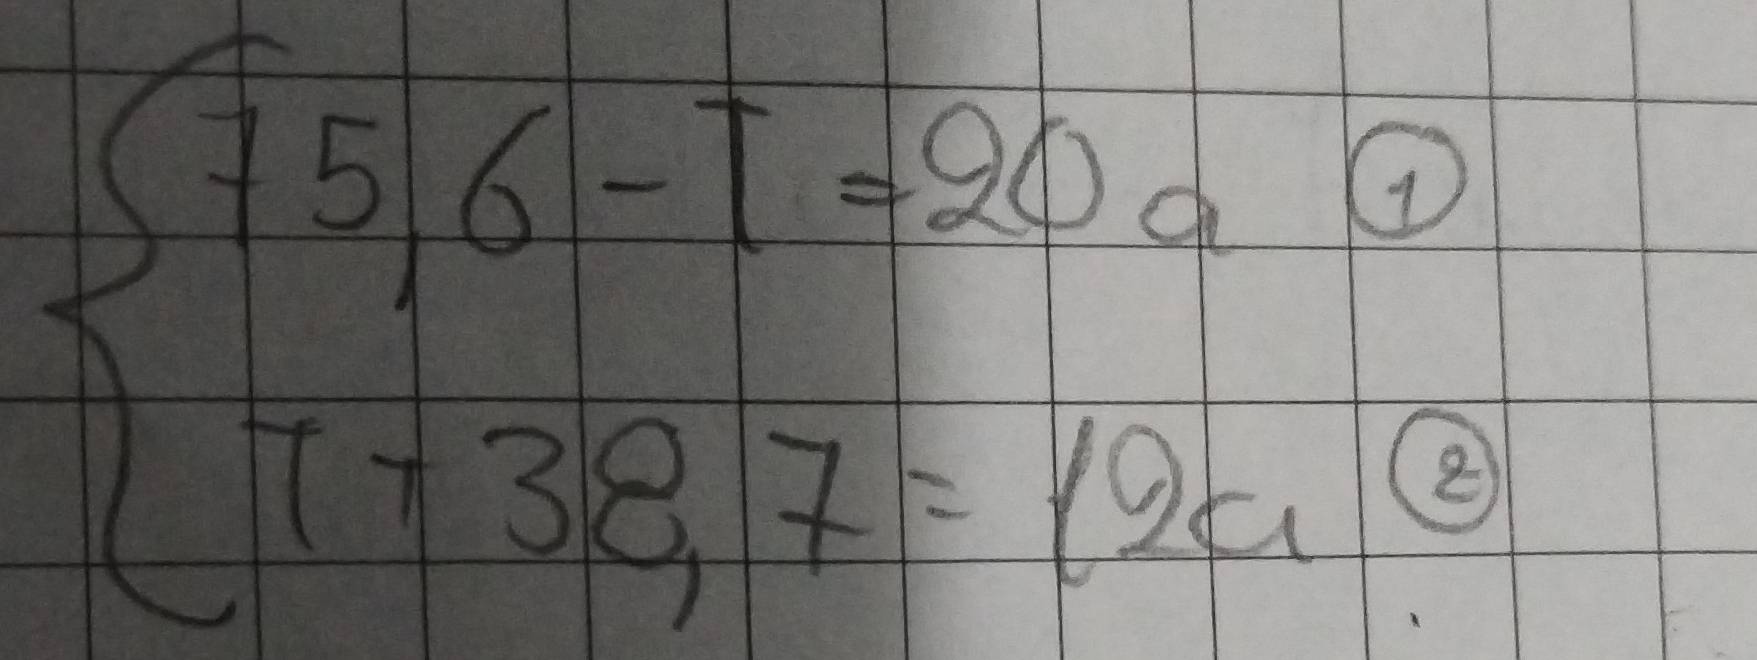 75,6 - T = 20a ①
T + 38,7 = 12a ②